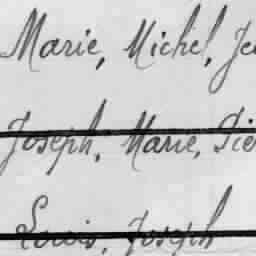 Marie, Michel, Je
Joseph, Marie, Pie
Louis, Joseph